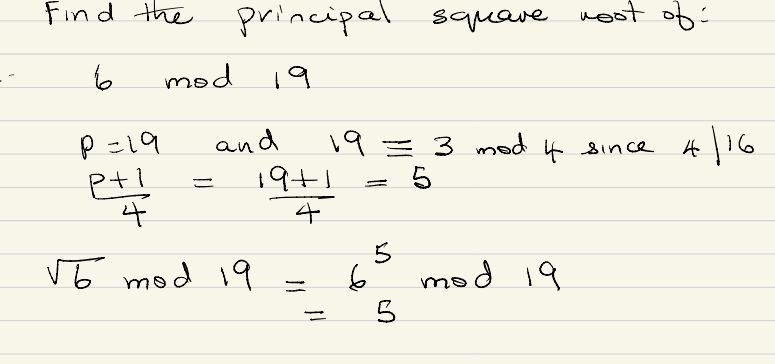 Find the principal square root of:
6 mod 19
p=19 and 19 ≡ 3 mod 4 since 4|16
p+1/4 = 19+1/4 = 5
√6 mod 19 = 6^5 mod 19
= 5